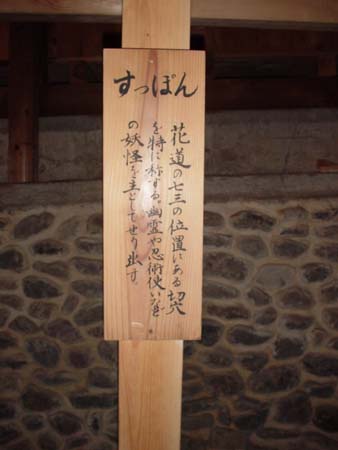 すっぽん
花道の七三の位置にある切穴
を特に称する。幽霊や忍術使いなど
の妖怪を主としてせり出す。